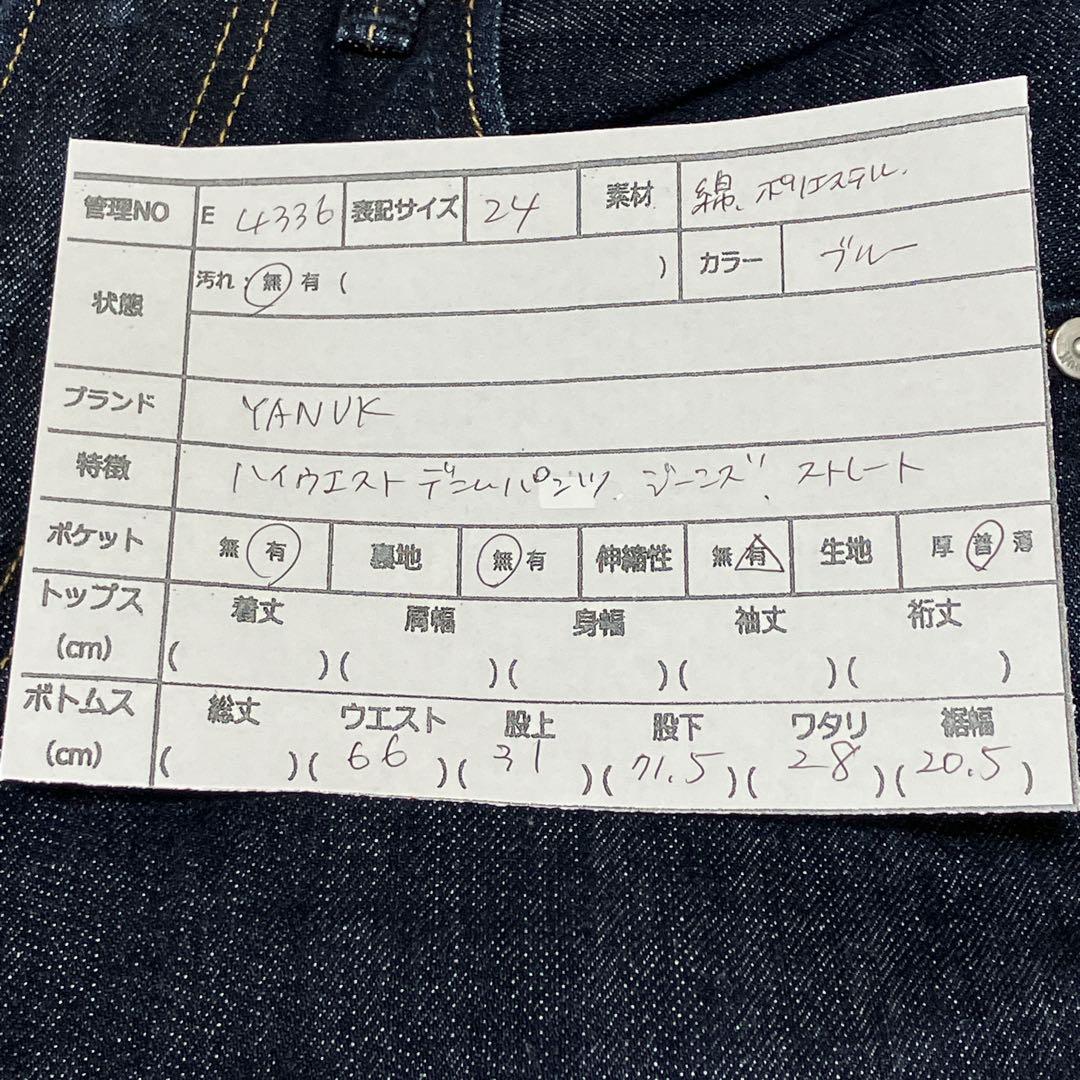 管理NO E 4336 表記サイズ 24 素材 綿、ポリエステル.
状態 汚れ: 無 有 ( ) カラー ブルー
ブランド YANUK
特徴 ハイウエストデニムパンツ、ジーンズ、ストレート
ポケット 無 有 裏地 無 有 伸縮性 無 有 生地 厚 普 薄
トップス 着丈 肩幅 身幅 袖丈 裄丈
(cm) ( )( )( )( )( )
ボトムス 総丈 ウエスト 股上 股下 ワタリ 裾幅
(cm) ( )( 66 )( 31 )( 71.5 )( 28 )( 20.5 )